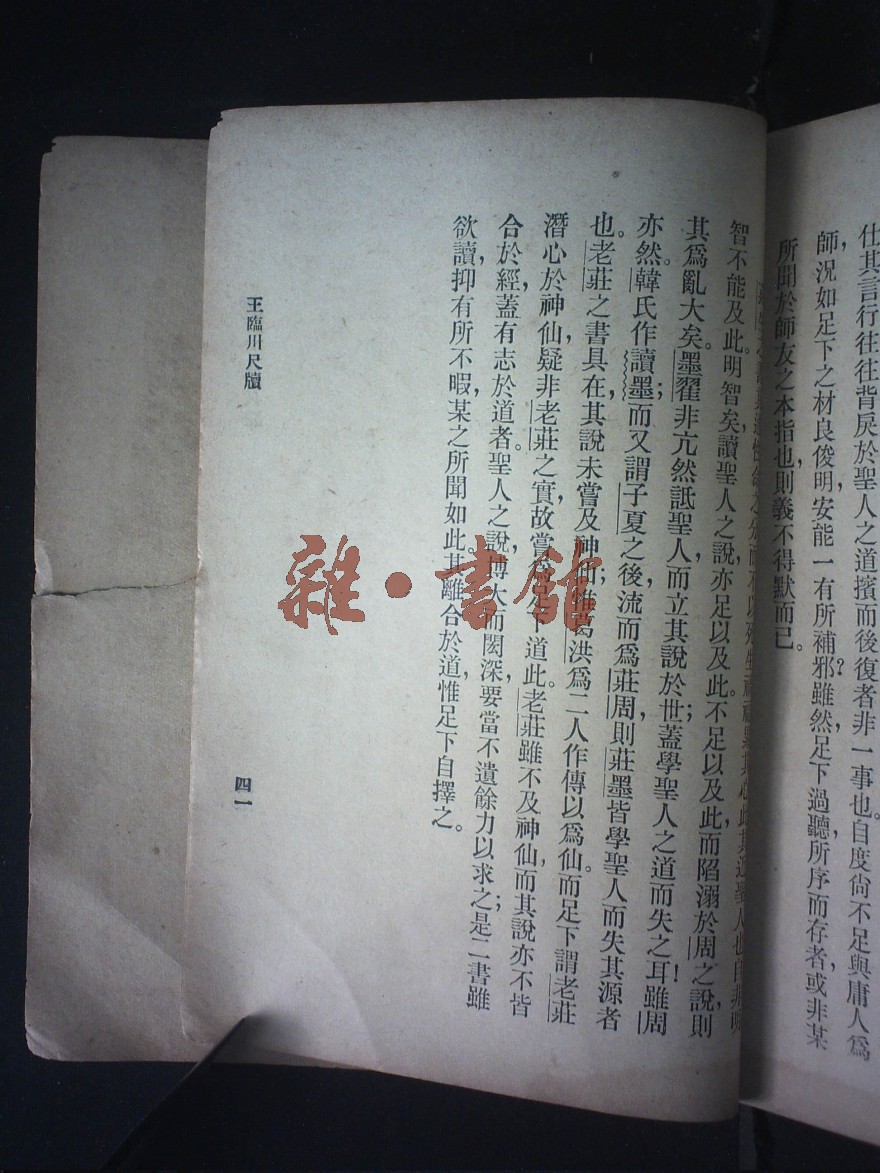 仕其言行往往背戾於聖人之道擯而後復者非一事也。自度尙不足與庸人爲
師，況如足下之材良俊明安能一有所補邪？雖然足下過聽，所序而存者，或非某
所聞於師友之本指也則義不得默而已。
智不能及此。明智矣讀聖人之說，亦足以及此。不足以及此，而陷溺於周之說，則
其爲亂大矣。墨翟非亢然詆聖人而立其說於世；蓋學聖人之道而失之耳！雖周
亦然。韓氏作讀墨；而又謂子夏之後，流而爲莊周，則莊墨皆學聖人而失其源者
也。老莊之書具在，其說未嘗及神仙；惟葛洪爲二人作傳以爲仙。而足下謂老莊
潛心於神仙，疑非老莊之實，故嘗爲足下道此。老莊雖不及神仙，而其說亦不皆
合於經，蓋有志於道者。聖人之說，博大而閎深，要當不遺餘力以求之；是二書雖
欲讀，抑有所不暇，某之所聞如此，其離合於道，惟足下自擇之。
王臨川尺牘
四一
雜·書館